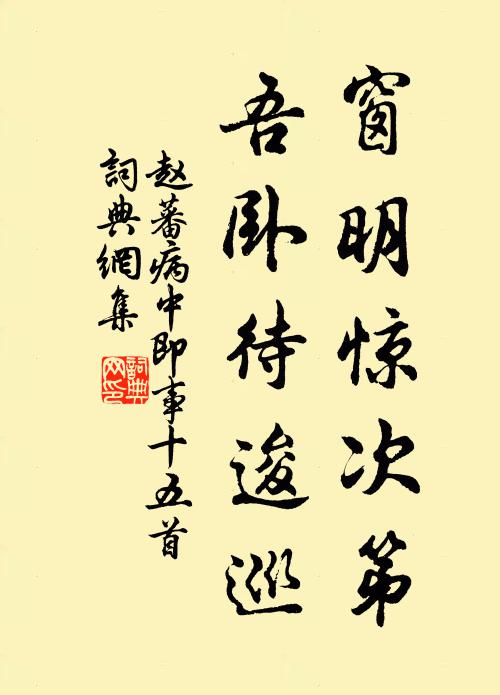 窗明惊次第
吾卧待逡巡
赵蕃病中即事十五首
詞典網集
詞典网印